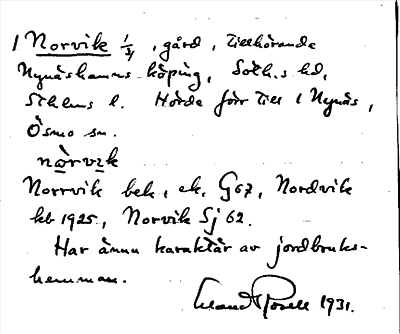 1 Norvik 1/4, gård, tillhörande
Nynäshamns köping, Soth.s hd,
Sthlms l. Hörde förr till 1 Nynäs,
Ösmo sn.
nòrvik
Norrvik bek, ek, G67, Nordvik
kb 1925, Norvik Sj 62.
Har ännu karaktär av jordbruks-
hemman.
1931.